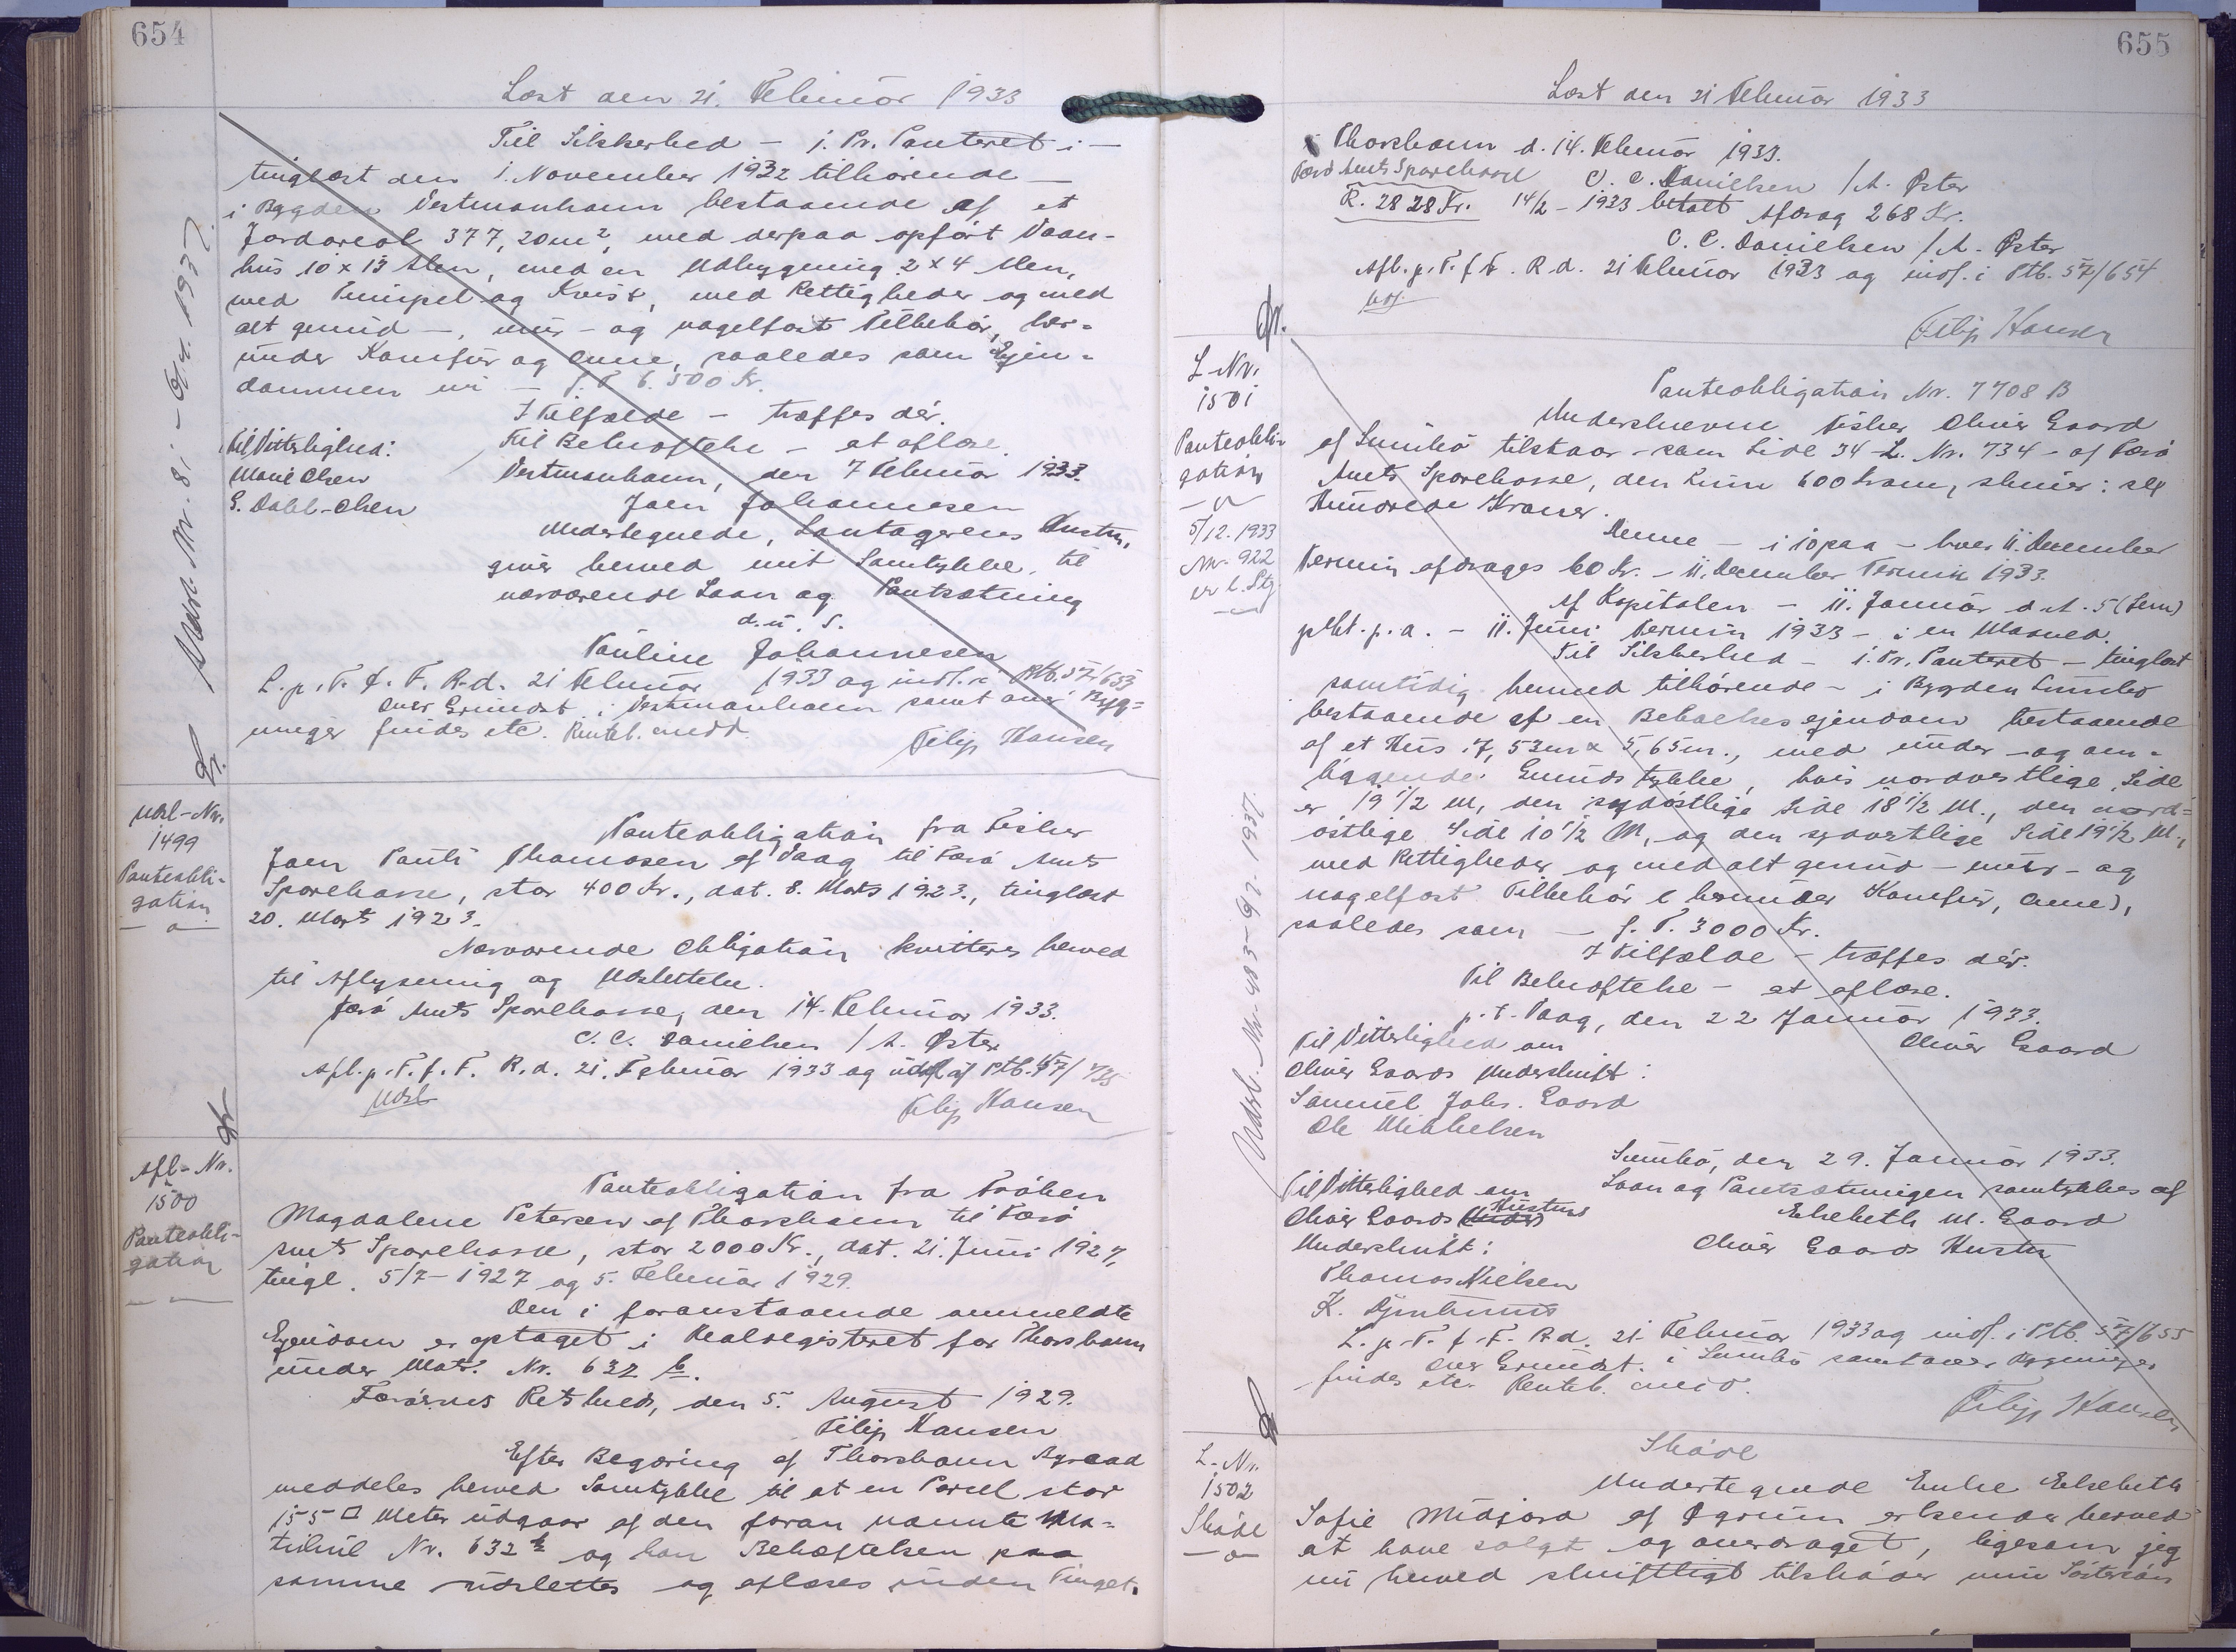 654
Læst den 21. Februar 1933
Til Sikkerhed - 1. Pr. Panteret i -
tinglæst den 1. November 1932 tilhørende -
i Bygden Vestmanhavn bestaaende af et
Jordareal 377,20 m², med derpaa opført Vaan-
hus 10 x 13 Alen, med en Udbygning 2 x 4 Alen,
med Pimpel og Kvist, med Rettigheder og med
alt grund -, mur - og nagelfast Tilbehør, her-
under Komfur og Ovne, saaledes som Ejen-
dommen nu - f. T. 6.500 Kr.
I Tilfælde - træffes dér.
Til Bekræftelse - at aflæse.
Vestmanhavn, den 7 Februar 1933.
Joen Johannesen
Til Vitterlighed:
Marie Olsen
S. Dahl-Olsen
Undertegnede, Lantagerens Hustru,
giver herved mit Samtykke til
nærværende Laan og Pantsætning
d. u. S.
Pauline Johannesen
L. p. T. f. F. R. d. 21 Februar 1933 og indf. i Ptb. 57/653
Over Grundst. i Vestmanhavn samt over Byg-
ninger findes etc. Panteb. endd.
Filip Hansen
Udsl. Nr. 81 - 6/4. 1937.
Udsl-Nr.
1499
Panteobli-
gation
Panteobligation fra Fisker
Joen Pauli Thomasen af Vaag til Færø Amts
Sparekasse, stor 400 Kr., dat. 8. Marts 1923., tinglæst
20. Marts 1923.
Nærværende Obligation kvitteres herved
til Aflysning og Udslettelse.
Færø Amts Sparekasse, den 14. Februar 1933.
C. C. Danielsen / A. Øster
Afl. p. T. f. F. R. d. 21. Februar 1933 og udsl. af Ptb. 47/735
Udsl
Filip Hansen
Afl-Nr.
1500
Panteobli-
gation
Panteobligation fra Frøken
Magdalene Petersen af Thorshavn til Færø
Amts Sparekasse, stor 2000 Kr., dat. 21. Juni 1927,
tingl. 5/7-1927 og 5. Februar 1929.
Den i foranstaaende anmeldte
Ejendom er optaget i Realregisteret for Thorshavn
under Matr. Nr. 632 b.
Færøernes Retskreds, den 5. August 1929.
Filip Hansen
Efter Begæring af Thorshavn Byraad
meddeles herved Samtykke til at en Parcel stor
155 □ Meter udgaar af den foran nævnte Ma-
trikul Nr. 632 b og kan Behæftelsen paa
samme udslettes og aflæses inden Tinget.
655
Læst den 21 Februar 1933
Thorshavn d. 14. Februar 1933.
Færø Amts Sparekasse C. C. Danielsen / A. Øster
R. 2828 Kr. 14/2-1933 betalt Afdrag 268 Kr.
C. C. Danielsen / A. Øster
Afl. p. T. f. F. R. d. 21 Februar 1933 og indf. i Ptb. 57/654
Filip Hansen
L-Nr.
1501
Panteobli-
gation
5/12. 1933
Nr. 922
Panteobligation Nr. 7708 B
Underskrevne Fisker Oliver Gaard
af Sumbø tilstaar - som Side 34 L. Nr. 734 - af Færø
Amts Sparekasse, den Sum 600 Kroner, skriver: sex
Hundrede Kroner.
Denne - i 10 paa - hver 11. December
Termin afdrages 60 Kr. - 11. December Termin 1933.
Af Kapitalen - 11. Januar d. A. 5 (fem)
pCt. p. a. - 11. Juni Termin 1933 - i en Maaned.
Til Sikkerhed - 1. Pr. Panteret - tinglæst
samtidig hermed tilhørende - i Bygden Sumbø
bestaaende af en Beboelsesejendom bestaaende
af et Hus 7,53 m x 5,65 m., med under - og om-
liggende Grundstykke, hvis nordvestlige Side
er 19 1/2 M, den sydøstlige Side 18 1/2 M., den nord-
østlige Side 10 1/2 M, og den sydvestlige Side 19 1/2 M.,
med Rettigheder og med alt grund - mur - og
nagelfast Tilbehør (herunder Komfur, Ovne),
saaledes som - f. T. 3000 Kr.
I Tilfælde - træffes dér.
Til Bekræftelse - at aflæse.
p. t. Vaag, den 22 Januar 1933.
Oliver Gaard
Til Vitterlighed om
Oliver Gaards Underskrift:
Samuel Johs. Gaard
Ole Mikkelsen
Sumbø, den 29. Januar 1933.
Laan og Pantsætningen samtykkes af
Elsebeth M. Gaard
Oliver Gaards Hustru
Til Vitterlighed om
Oliver Gaards Hustrus
Underskrift:
Thomas Nielsen
K. Djurhuus
L. p. T. f. F. R. d. 21. Februar 1933 og indf. i Ptb. 57/655
Over Grundst. i Sumbø samt over Bygninger
findes etc. Panteb. endd.
Filip Hansen
Udsl. Nr. 483 - 9/2. 1937.
L-Nr.
1502
Skøde
Skøde
Undertegnede Enke Elsebeth
Sofie Midjord af Øgrum erkender herved
at have solgt og overdraget, ligesom jeg
nu herved skriftligt tilskøder min Søstersøn